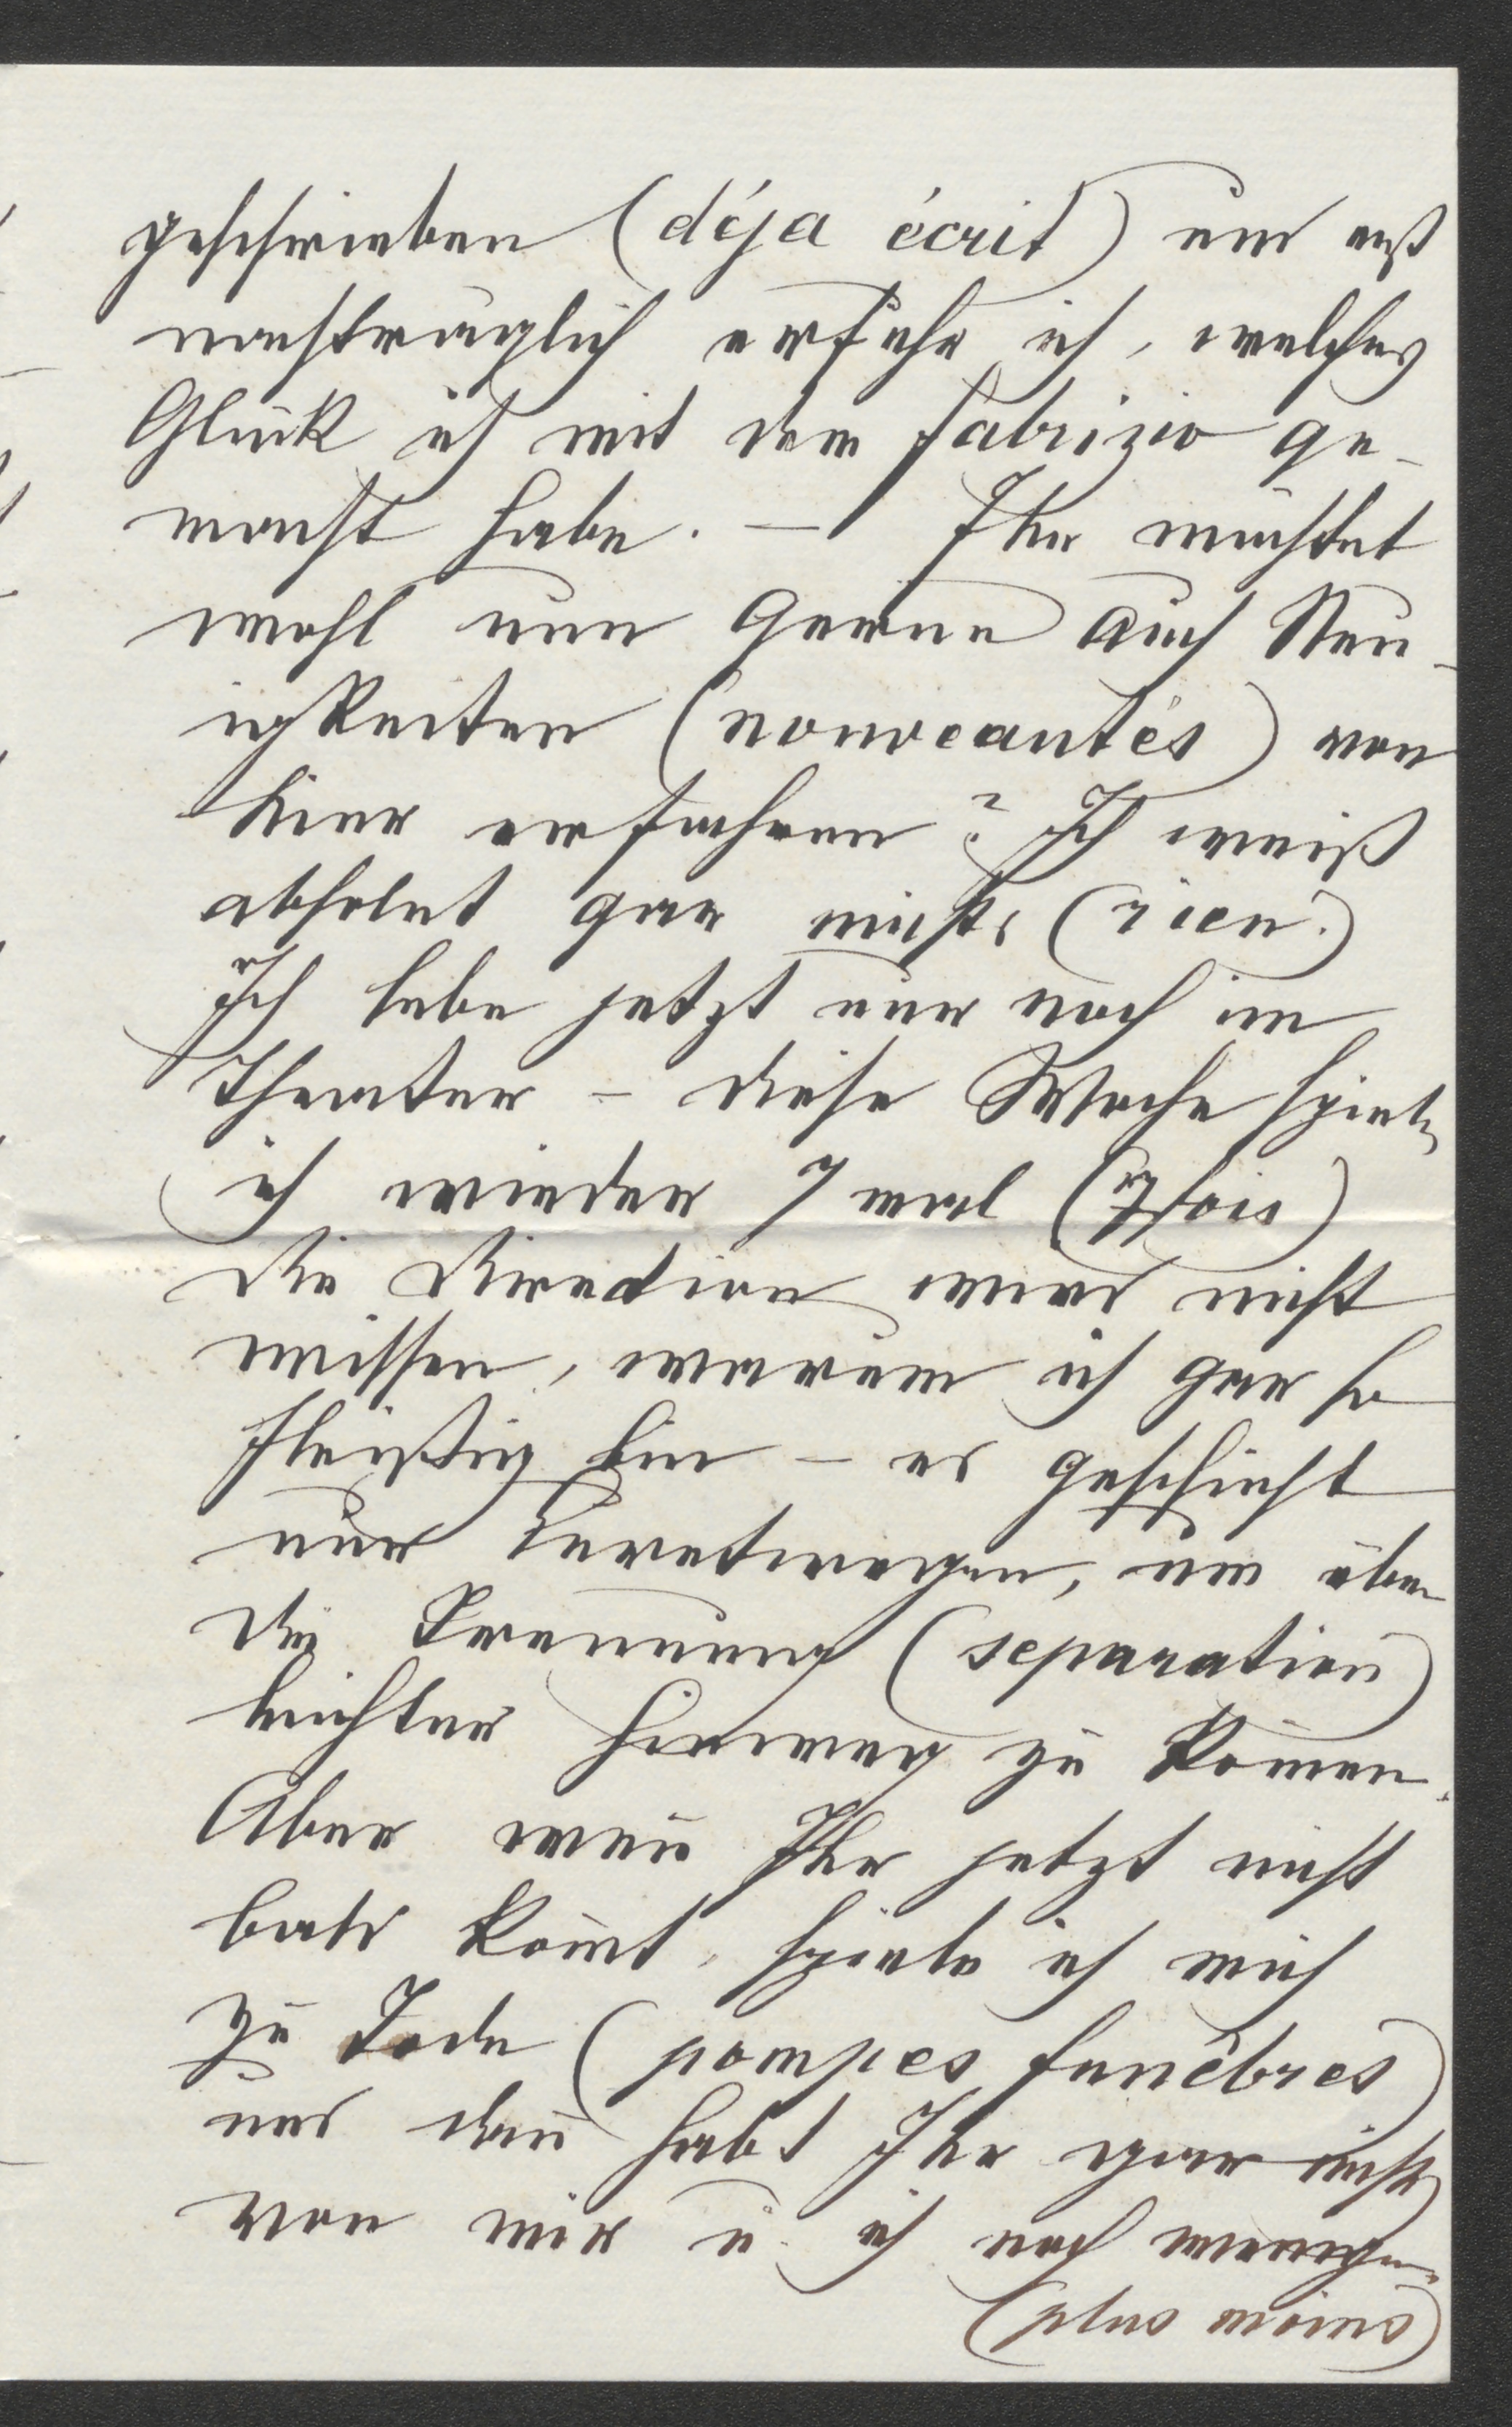 geschrieben (déja écrit) und erst
nachträglich erfuhr ich, welches
Glück ich mit dem Fabrizio ge-
macht habe. — Ihr möchtet
wohl nun gerne auch Neu-
igkeiten (nouveautés) von
hier erfahren? Ich weiß
absolut gar nichts (rien!)
Ich lebe jetzt nur noch im
Theater – diese Woche spiele
ich wieder 7 mal (7 fois)
die Direction wird nicht
wissen, warum ich gar so
fleißig bin – es geschieht
nur Euretwegen, um über
die Trennung (separation)
leichter hinweg zu kom̄en.
Aber wen̄ Ihr jetzt nicht
bald kom̄t, spiele ich mich
zu Tode (pompes funèbres)
und dan̄ habt Ihr gar nichts
von mir u. ich noch weniger
(plus moins)